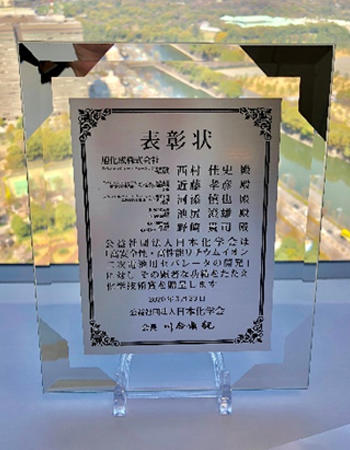 表彰状
旭化成株式会社
西村 佳史 殿
近藤 孝彦 殿
河添 慎也 殿
池尻 澄雄 殿
野﨑 貴司 殿
公益社団法人日本化学会は
「高安全性・高性能リチウムイオン
二次電池用セパレータの開発」
に対し その顕著な功績をたたえ
化学技術賞を贈呈します
2020年3月23日
公益社団法人日本化学会
会長